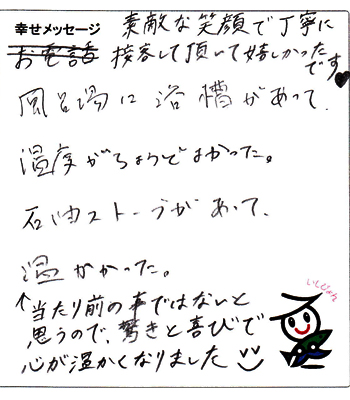 幸せメッセージ
お電話
素敵な笑顔で丁寧に
接客して頂いて嬉しかった
です♥
風呂場に浴槽があって、
温度がちょうどよかった。
石油ストーブがあって、
温かかった。
↑当たり前の事ではないと
思うので、驚きと喜びで
心が温かくなりました